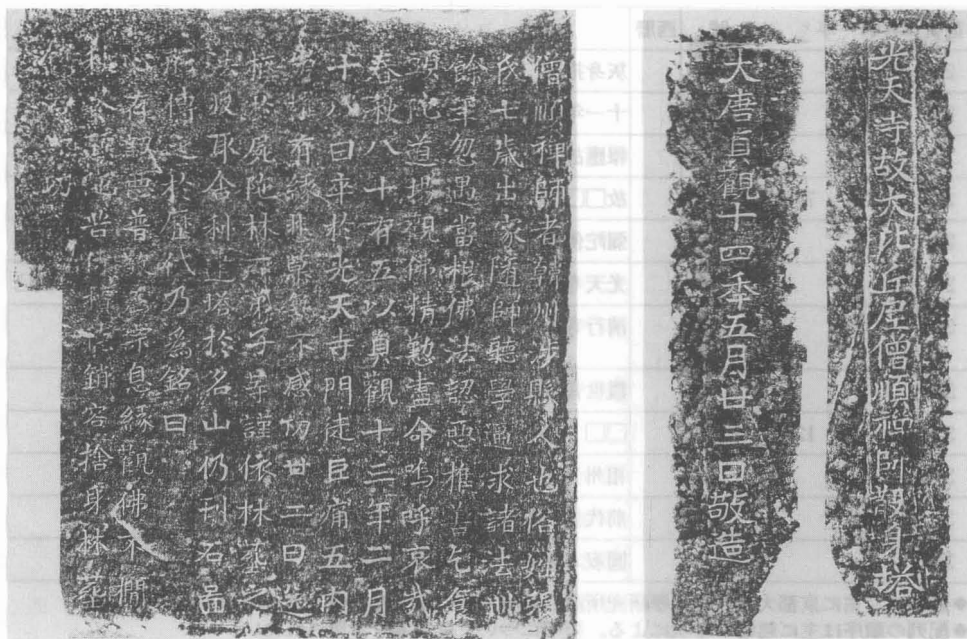 光天寺故大比丘尼僧順禪師散身塔
大唐貞觀十四年五月廿三日敬造
僧順禪師者韓州涉縣人也俗姓張
氏七歲出家隨師聽學遍求諸法卌
餘年忽遇當根佛法認惡推善乞食
頭陀道場觀佛精懃盡命嗚呼哀哉
春秋八十有五以貞觀十三年二月
十八日卒於光天寺門徒巨痛五內
有緣悲慕無不感切廿二日送
柩於屍陀林所弟子等謹依林葬之
法收取舍利建塔於名山仍刊石啚
形傳之於歷代乃為銘曰
心存認惡普敬為宗息緣觀佛不擱
秋冬頭陀苦行積德銷容捨身林葬
功